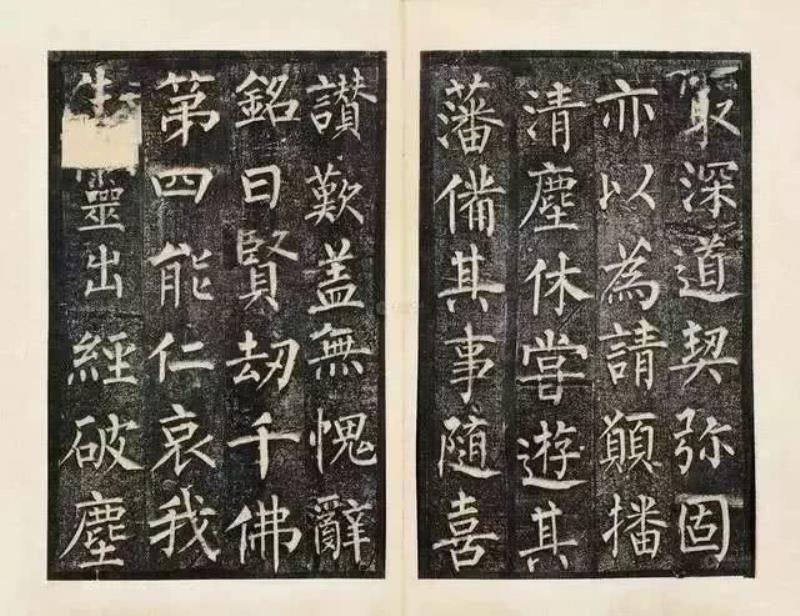 冣深道契弥固
亦以為請願播
清塵休甞遊其
藩備其事隨喜
讚歎盖無愧辭
銘曰賢劫千佛
第四能仁哀我
生靈出經破塵